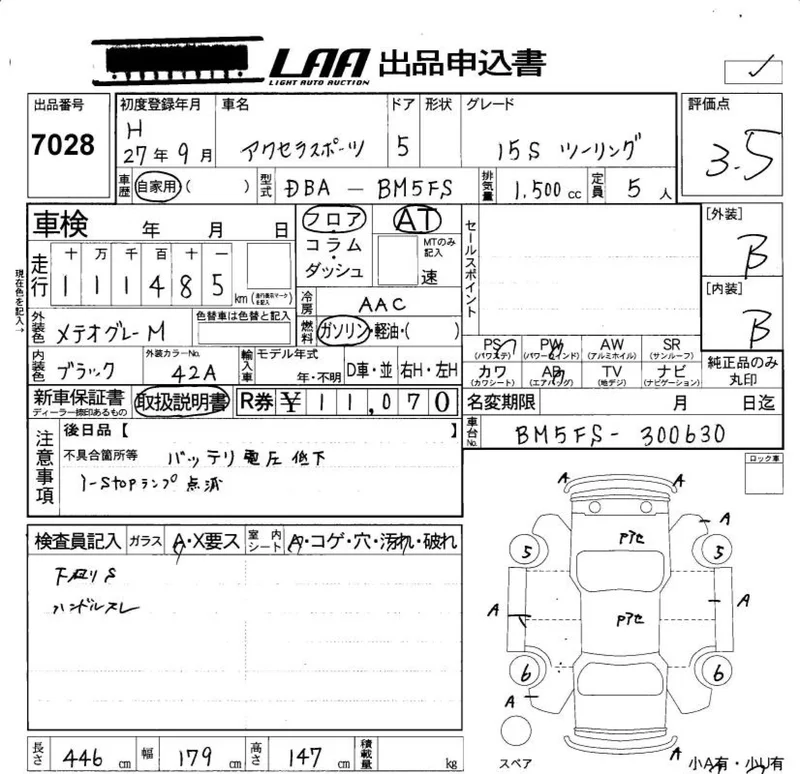 LAA 出品申込書
LIGHT AUTO AUCTION
出品番号 初度登録年月 車名 ドア 形状 グレード 評価点
7028 H 27年9月 アクセラスポーツ 5 15S ツーリング 3.5
車歴 自家用( ) 型式 DBA - BM5FS 排気量 1,500cc 定員 5人
車検 年 月 日 フロア AT セールスポイント [外装]
コラム・ダッシュ MTのみ記入 速 B
現在色を記入→
走行 十 万 千 百 十 一
111485 km (走行表示マークを記入) 冷房 AAC [内装]
外装色 メテオグレーM 色替車は色替と記入 燃料 ガソリン・軽油・( ) B
PS (パワステ) PW (パワーウィンド) AW (アルミホイル) SR (サンルーフ)
内装色 ブラック 外装カラーNo. 42A 輸入車 モデル年式 年・不明 D車・並 右H・左H
カワ (カワシート) AB (エアバッグ) TV (地デジ) ナビ (ナビゲーション) 純正品のみ丸印
新車保証書 ディーラー捺印あるもの 取扱説明書 R券 ¥11,070 名変期限 月 日迄
車台No. BM5FS-300630
注意事項 後日品【 】
不具合箇所等 バッテリ電圧低下
i-stopランプ点滅
ロック車
検査員記入 ガラス A・X要ス 室内シート A・コゲ・穴・汚れ・破れ
下廻りS
ハンドルスレ
A A
A
Pアセ
5 5
A Pアセ A
6 6
A
A
スペア 小A有・少U有
長さ 446 cm 幅 179 cm 高さ 147 cm 積載量 kg